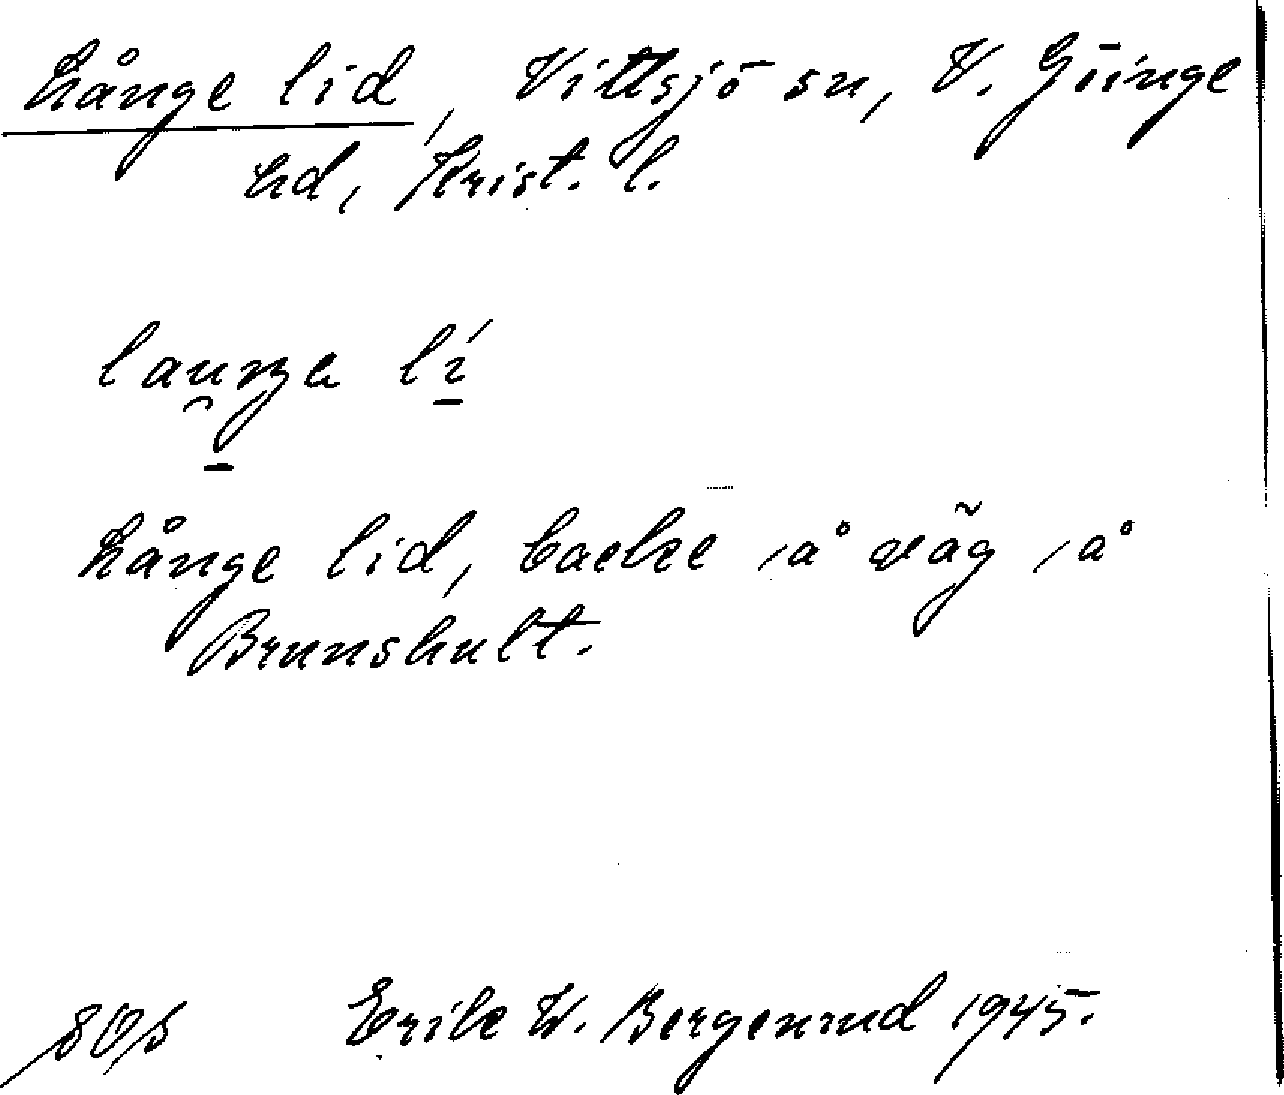 Långe lid, Vittsjö sn, V. Göinge
hd, Krist. l.
lí
Långe lid, backe å väg å
Brunshult.
Erik W. Bergenrud 1945.